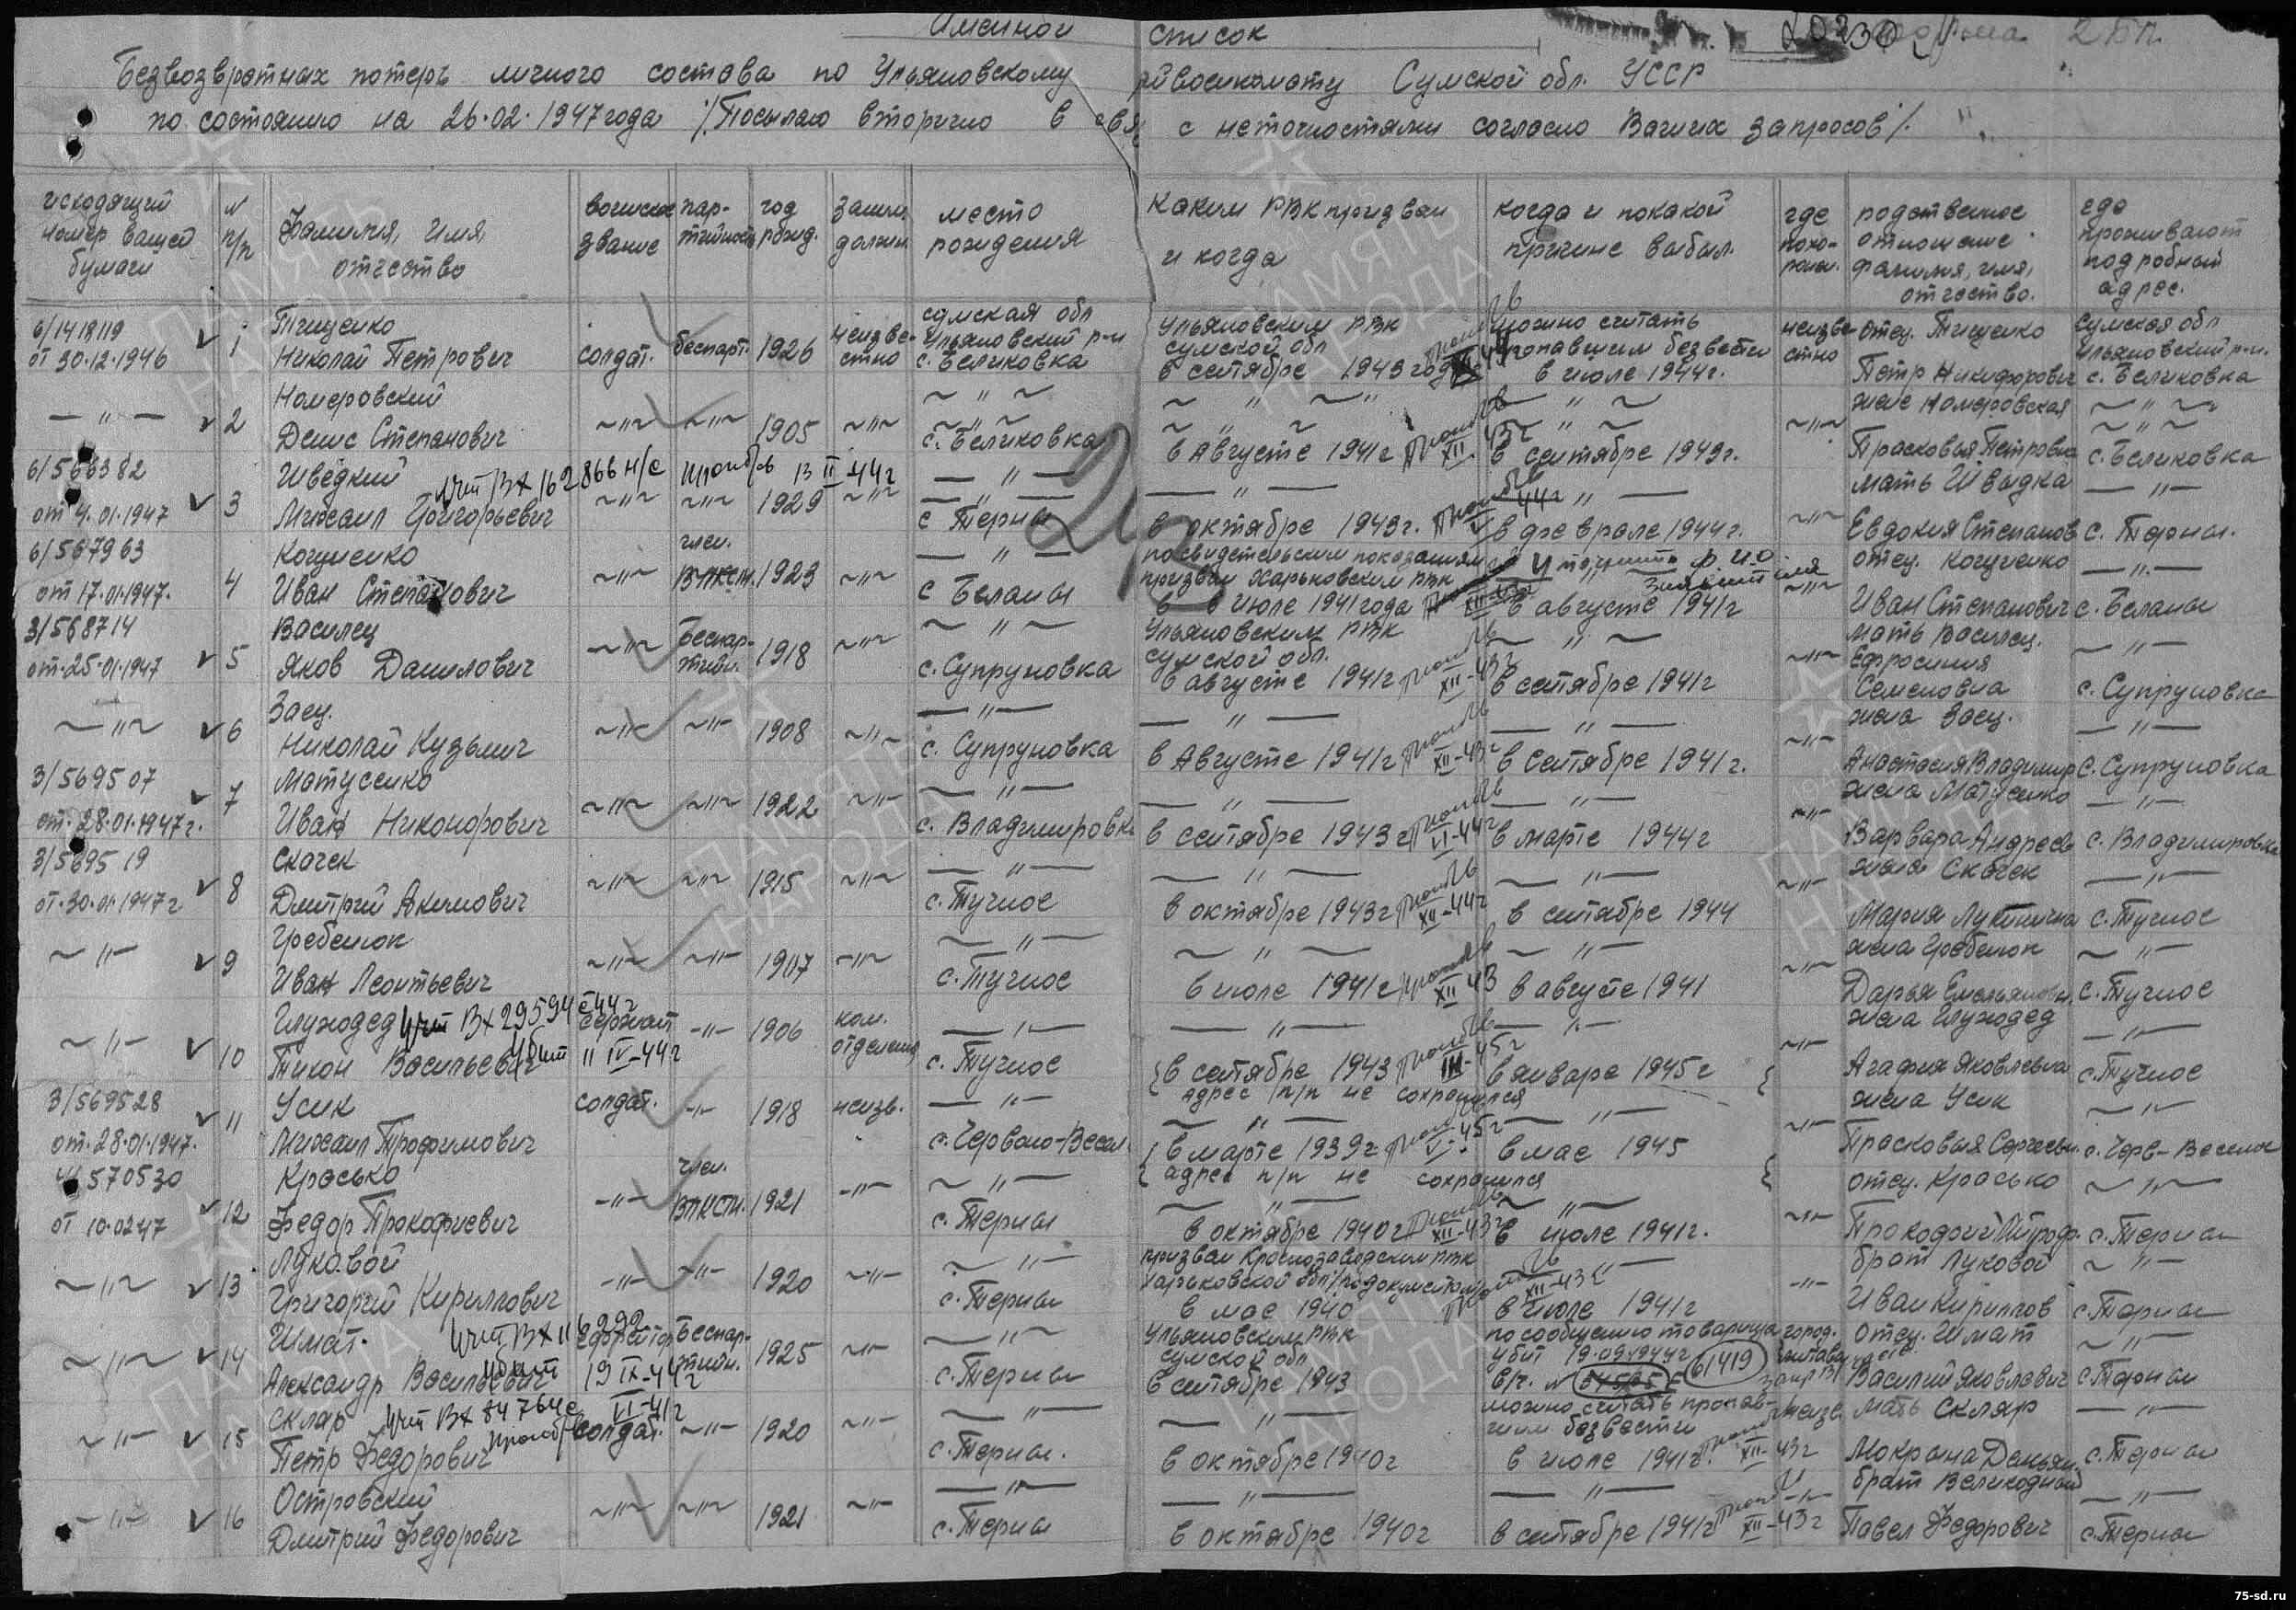 Именной список
20230
Форма 2 БП
Безвозвратных потерь личного состава по Ульяновскому райвоенкомату Сумской обл. УССР
по состоянию на 26.02.1947 года /Посылаю вторично в связ с неточностями согласно Ваших запросов/.
исходящий номер вашей бумаги
N п/п
Фамилия, имя, отчество
воинское звание
пар-тийность
год рожд.
заним. должн.
место рождения
каким РВК призван и когда
когда и по какой причине выбыл.
где похо-ронен.
родственное отношение фамилия, имя, отчество.
где проживают подробный адрес.
6/1418119 от 30.12.1946
1
Тищенко Николай Петрович
солдат.
беспарт.
1926
неизве-стно
сумская обл Ульяновский р-н с. Беликовка
Ульяновским РВК сумской обл в сентябре 1943 год
можно считать пропавшим безвести в июле 1944г.
неизве-стно
отец. Тищенко Петр Никифорович
Сумская обл Ульяновский р-н. с. Беликовка
— " —
2
Номеровский Денис Степанович
~"~
~"~
1905
~"~
с. Беликовка
в Августе 1941г
XII 43г
в сентябре 1943г.
~"~
жена Номеровская Прасковья Петровна
с. Беликовка
6/566382 от 4.01.1947
3
Шведкий Михаил Григорьевич
Учт Вх 162866 н/с
проп б/в в II-44г
~"~
~"~
1929
~"~
с Терны
в октябре 1943г.
44г
в феврале 1944г.
~"~
мать Швыдка Евдокия Степанов
с. Терны.
6/567963 от 17.01.1947.
4
Коценко Иван Степанович
~"~
член. ВЛКСМ.
1923
~"~
с Беланы
по свидетельским показаниям призван Харьковским РВК в июле 1941 года
уточнить ф.и.о
в августе 1941г
~"~
отец. Коценко Иван Степанович
с. Беланы
3/568714 от.25.01.1947
5
Василец Яков Данилович
~"~
Беспар-тийн.
1918
~"~
с. Супруновка
Ульяновским РВК сумской обл. в августе 1941г
XII-43г
в сентябре 1941г
~"~
мать Василец. Ефросиния Семеновна
с. Супруновка
~"~
6
Заец. Николай Кузьмич
~"~
~"~
1908
~"~
с. Супруновка
в Августе 1941г
XII-43г
в Сентябре 1941г.
~"~
жена Заец. Анастасия Владимир
с. Супруновка
3/569507 от.28.01.1947г.
7
Матусенко Иван Никонорович
~"~
~"~
1922
~"~
с. Владимировка
в сентябре 1943г
VI-44г
в марте 1944г
~"~
жена Матусенко Варвара Андреев
с. Владимировка
3/569519 от.30.01.1947г
8
Скачек Дмитрий Акимович
~"~
~"~
1915
~"~
с. Тучное
в октябре 1943г
XII-44г
в сентябре 1944
~"~
жена Скачек Мария Лукинична
с. Тучное
~"~
9
Гребенюк Иван Леонтьевич
~"~
~"~
1907
~"~
с. Тучное
в июле 1941г
XII 43
в августе 1941
~"~
жена Гребенюк Дарья Емельяновн.
с. Тучное
~"~
10
Глуходед Тихон Васильевич
Учт Вх 29594с 44г
убит 11 IV-44г
сержант
-"-
1906
ком. отделения
с. Тучное
в сентябре 1943
адрес п/п не сохранился
III-45г
в январе 1945г
-"-
жена Глуходед Агафия Яковлевна
с. Тучное
3/569528 от.28.01.1947.
11
Усик Михаил Трофимович
солдат.
-"-
1918
неизв.
с. Червоно-Весел
в марте 1939г
адрес п/п не сохранился
V-45г
в мае 1945
-"-
жена Усик Прасковья Сергеевн.
с. Черв-Веселое
570530 от 10.02.47
12
Красько Федор Прокофиевич
-"-
член. ВЛКСМ.
1921
-"-
с. Терны
в октябре 1940г
XII-43г
в июле 1941г.
-"-
отец. Красько
с. Терны
~"~
13
Луковой Григорий Кириллович
-"-
-"-
1920
-"-
с. Терны
призван Краснозаводским РВК харьковской обл в мае 1940
XII-43г
в июле 1941г
-"-
брат Луковой Иван Кириллов
с. Терны
~"~
14
Шмат. Александр Васильевич
Учт Вх 116292
убит 19 IX-44г
Ефрейтор
Беспар-тийн.
1925
-"-
с. Терны
Ульяновским РВК сумской обл в сентябре 1943
по сообщению товарища убит 19.09.1944г
в/ч. N
61419
город.
отец. Шмат Василий Яковлевич
с. Терны
~"~
15
Скляр Петр Федорович
Учт Вх 84764с
VII-41г
солдат.
~"~
1920
~"~
с. Терны.
в октябре 1940г
можно считать пропав-шим безвести в июле 1941г.
XII-43г
неизв
мать Скляр Мокрына Демьян.
с. Терны
-"-
16
Островский Дмитрий Федорович
~"~
~"~
1921
-"-
с. Терны
в октябре 1940г
в сентябре 1941г
XII-43г
-"-
брат Великодный Павел Федорович
с. Терны
ПАМЯТЬ НАРОДА
75-sd.ru